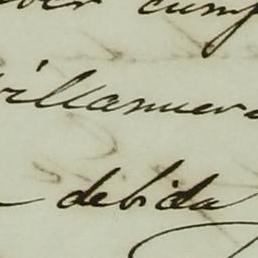 cump
villanueva
debida